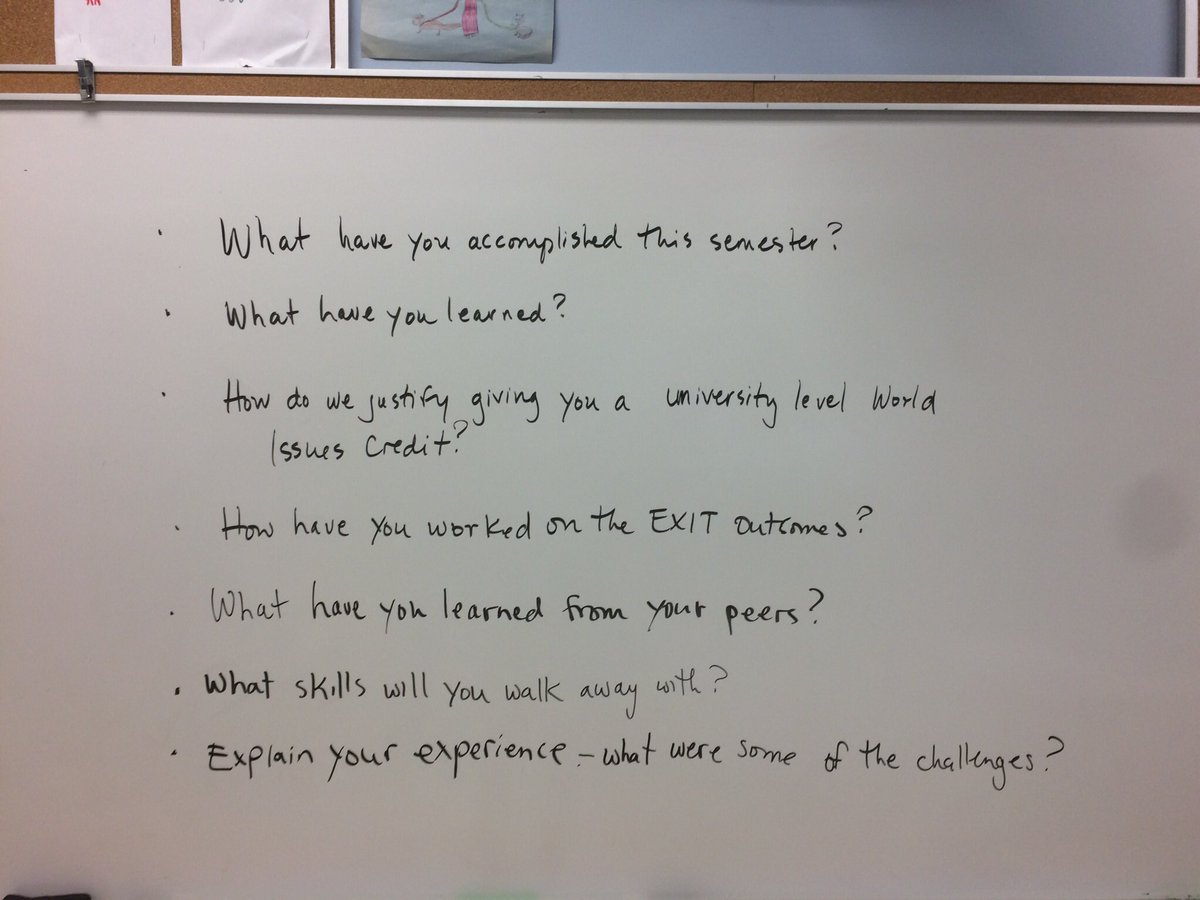 · What have you accomplished this semester?
· What have you learned?
· How do we justify giving you a university level World
Issues Credit?
· How have you worked on the EXIT outcomes?
· What have you learned from your peers?
· What skills will you walk away with?
· Explain your experience - what were some of the challenges?